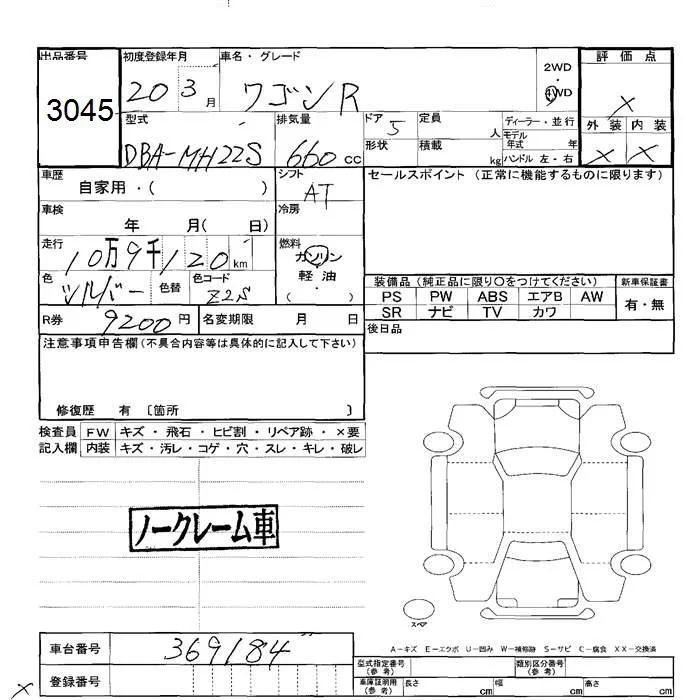 出品番号 初度登録年月 車名・グレード 評価点
3045 20 3 月 ワゴンR 2WD 4WD ×
型式 排気量 ドア 5 定員 人 ディーラー・並行 外装 内装
DBA-MH22S 660 cc 形状 積載 kg モデル年式 年 ハンドル 左・右 × ×
車歴 自家用・( ) シフト AT セールスポイント (正常に機能するものに限ります)
車検 年 月( 日) 冷房
走行 10万9千120 km 燃料 ガソリン・軽油
色 シルバー 色替 色コード Z2S ( ) 装備品 (純正品に限り○をつけてください) 新車保証書
PS PW ABS エアB AW 有・無
SR ナビ TV カワ
R券 9200 円 名変期限 月 日 後日品
注意事項申告欄(不具合内容等は具体的に記入して下さい)
修復歴 有 〔箇所 〕
検査員 FW キズ・飛石・ヒビ割・リペア跡・×要
記入欄 内装 キズ・汚レ・コゲ・穴・スレ・キレ・破レ
ノークレーム車
スペア
A-キズ E-エクボ U-凹み W-補修跡 S-サビ C-腐食 XX-交換済
車台番号 369184
登録番号
型式指定番号 (参考) 類別区分番号 (参考)
車庫証明用 (参考) 長さ cm 幅 cm 高さ cm
×